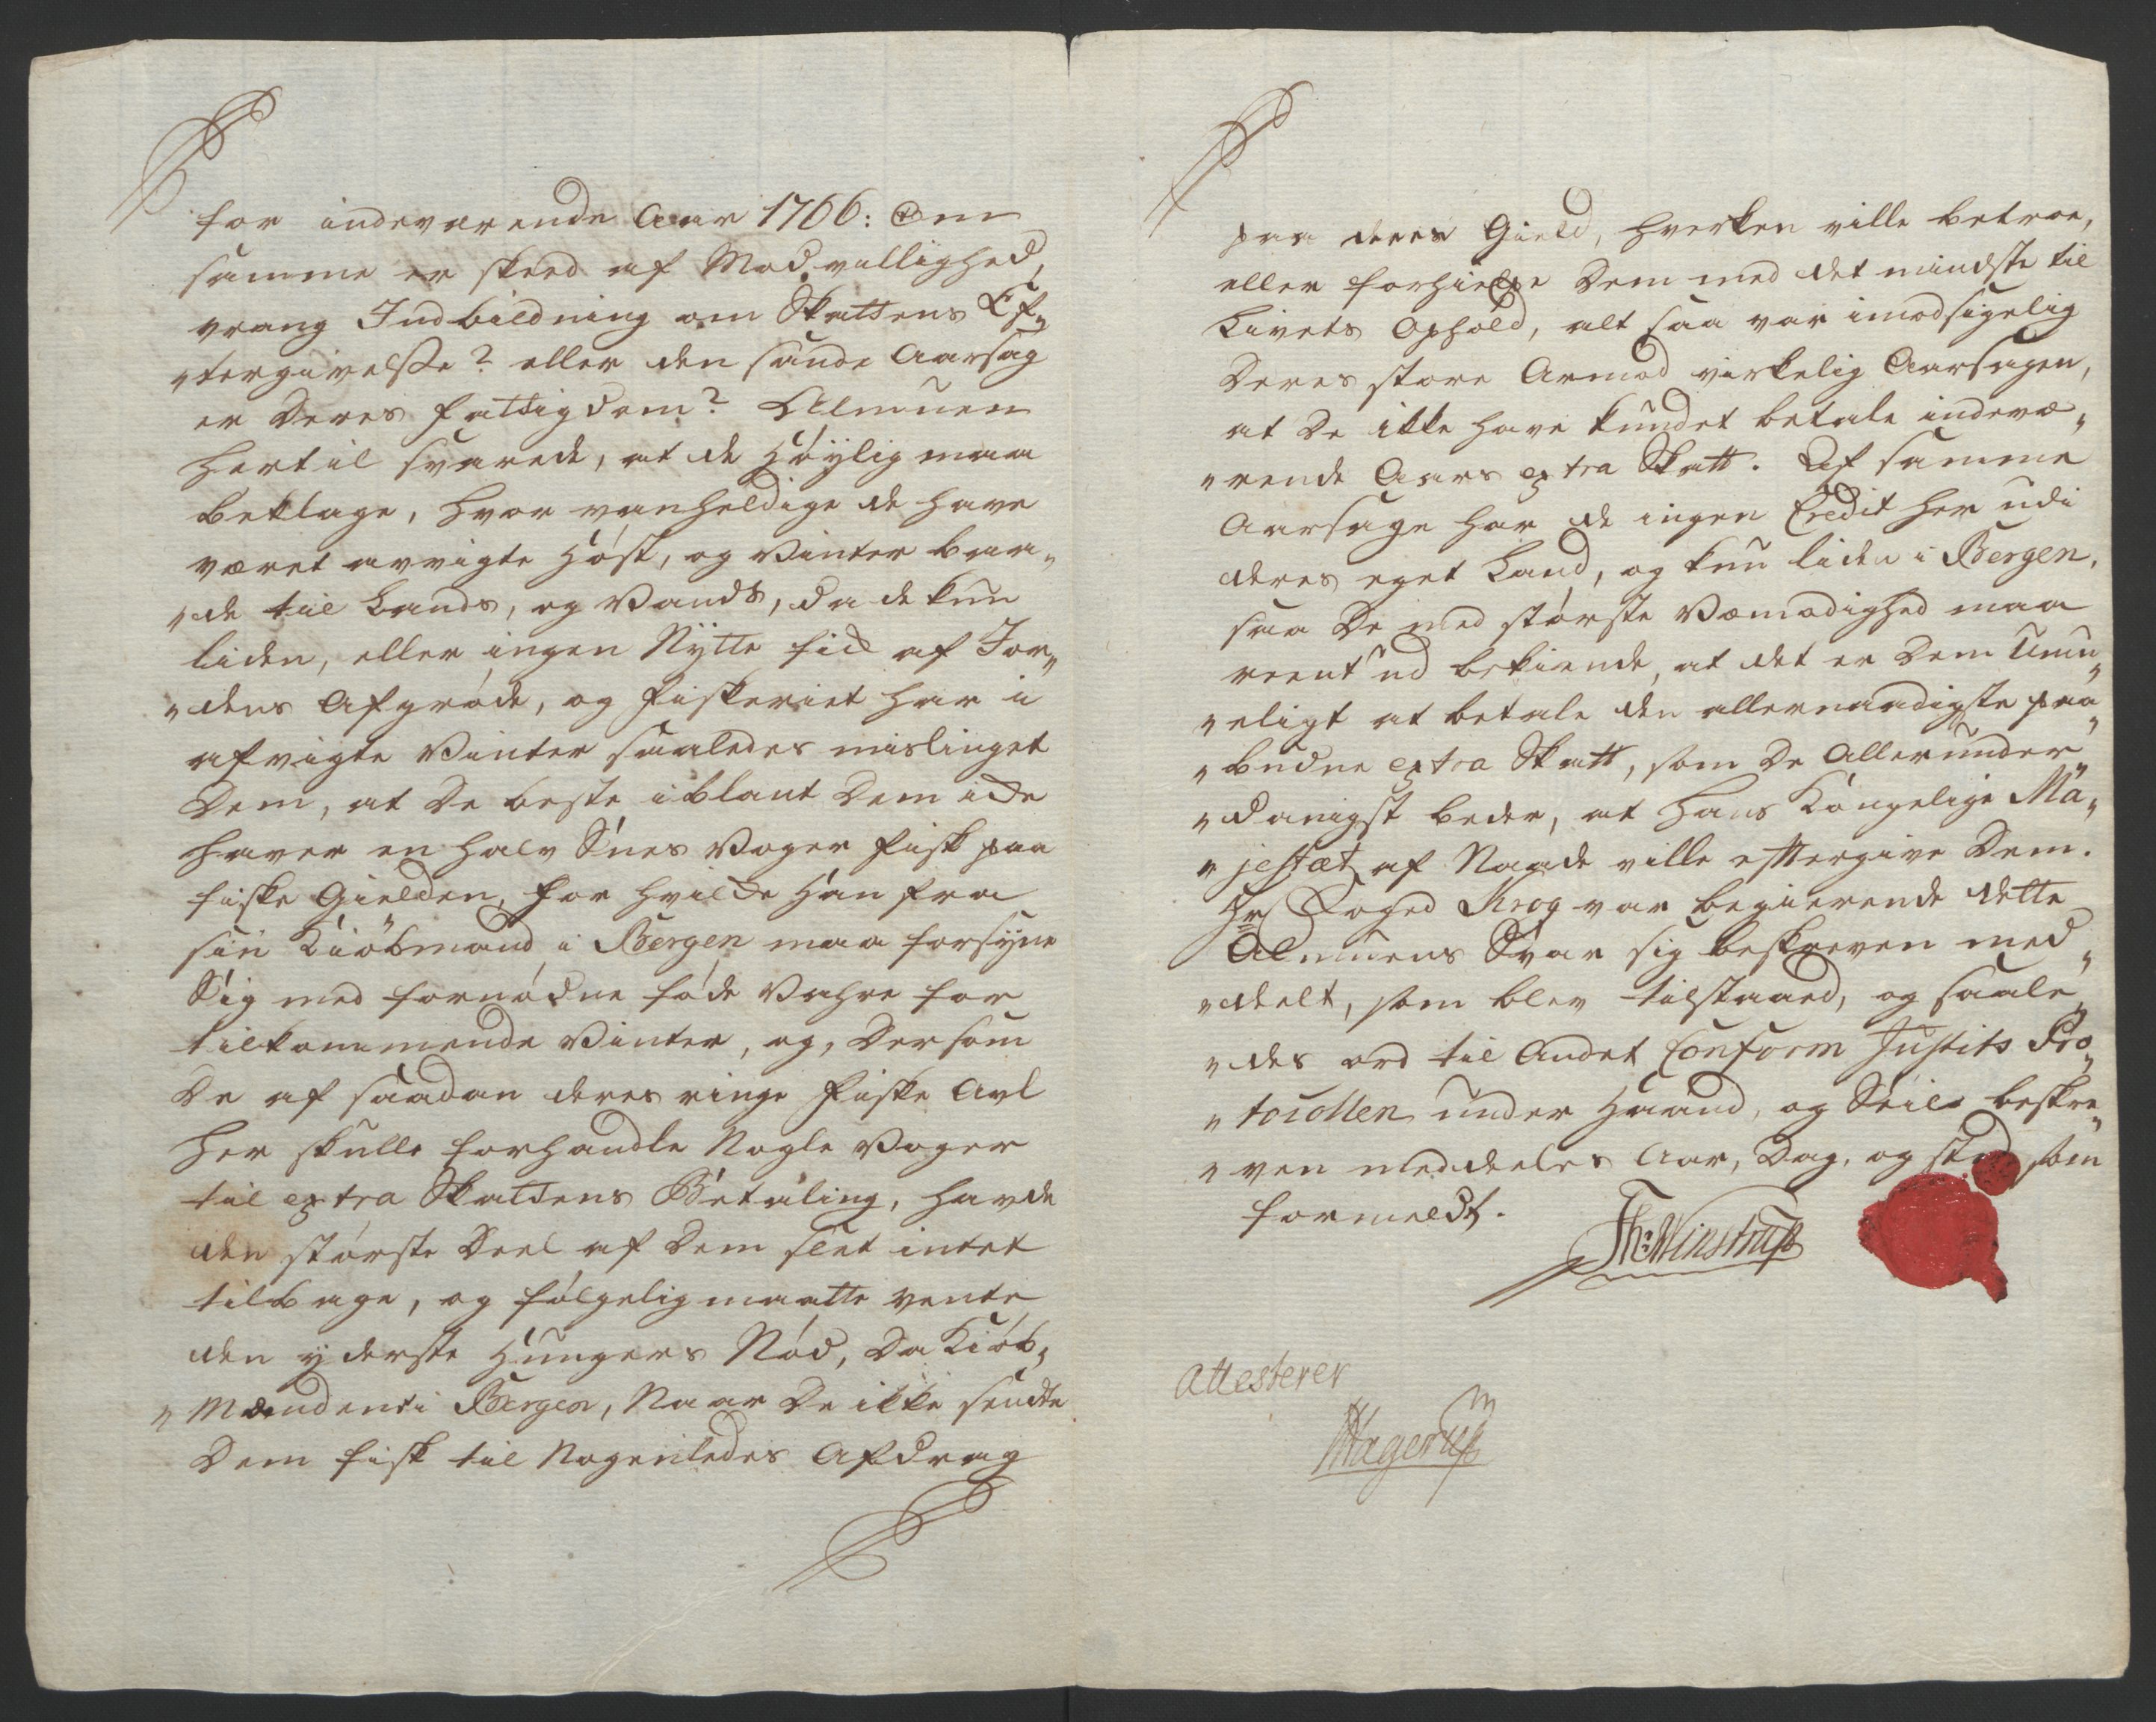 for indeværende Aar 1766: Om
samme er skeed af Modvillighed,
vrang Indbildning om Skattens Ef„
„tergivelsse? eller den sande Aarsag
er Deres Fattigdom? Almuen
hertil svarede, at de Høÿlig maa
beklage, hvor vanheldige de have
været avvigte Høst, og Vinter baa„
„de til Lands, og Vands, da de kun
liden, eller ingen Nÿtte fik af Jor„
„dens Afgrøde, og Fiskeriet har i
afvigte Vinter saaledes mislinget
Dem, at De beste iblant Dem icke
haver en halv Snes Voger Fisk paa
Fiske Gielden, for hvilcke Han fra
sin Kiöbmand i Bergen maa forsÿne
Sig med fornødne føde Vahre for
tilkommende Vinter, og, Dersom
De af saadan deres ringe Fiske Avl
Her skulle forhandle Nogle Voger
til extra Skattens Betaling, havde
den største Deel af Dem slet intet
tilbage, og følgelig maatte vente
den ÿderste Hungers Nød, Da Kiøb„
„mændene i Bergen, Naar De ikke sendte
Dem Fisk til Nogenledes Afdrag
paa deres Gield, hverken ville betroe,
eller forhielpe Dem med det mindste til
Livets Ophold, alt saa var imodsigelig
Deres store Armod virkelig Aarsagen,
at De ikke have kundet betale indevæ„
„rende Aars extra Skatt. Af samme
Aarsage har de ingen Credit her udi
deres eget Land, og kun liden i Bergen,
saa De med største Vemodighed maa
reent ud bekiende, at det er Dem Umu„
„eligt at betale den allernaadigste paa„
„budne extra Skatt, som De Allerunder„
„danigst beder, at Hans Kongelige Ma„
„jestæt af Naade ville eftergive Dem.
Hr Foged Krog var begierende dette
Almuens Svar sig beskreven med„
„deelt, som blev tilstaaed, og saale„
„des ord til Andet Conform Justits Pro„
„tocollen under Haand, og Seil beskre„
„ven meddeeles Aar, Dag, og sted som
formeldt.
Th: Winstrup
Attesterer
Hagerup